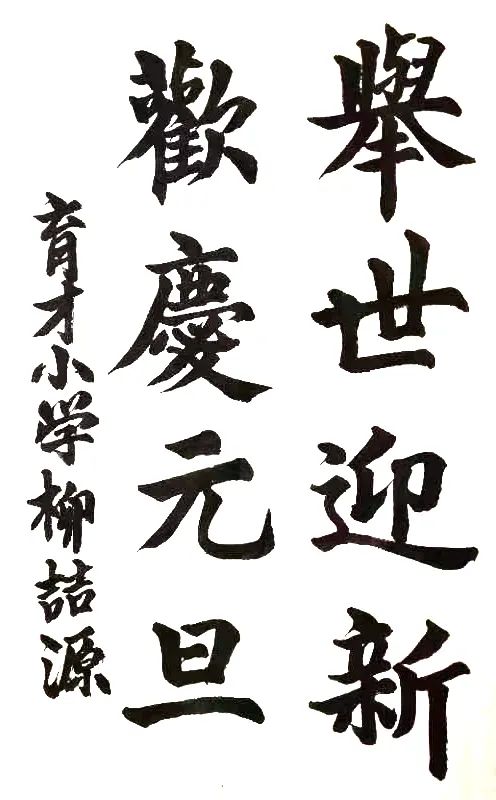 舉世迎新
歡慶元旦
育才小学柳喆源